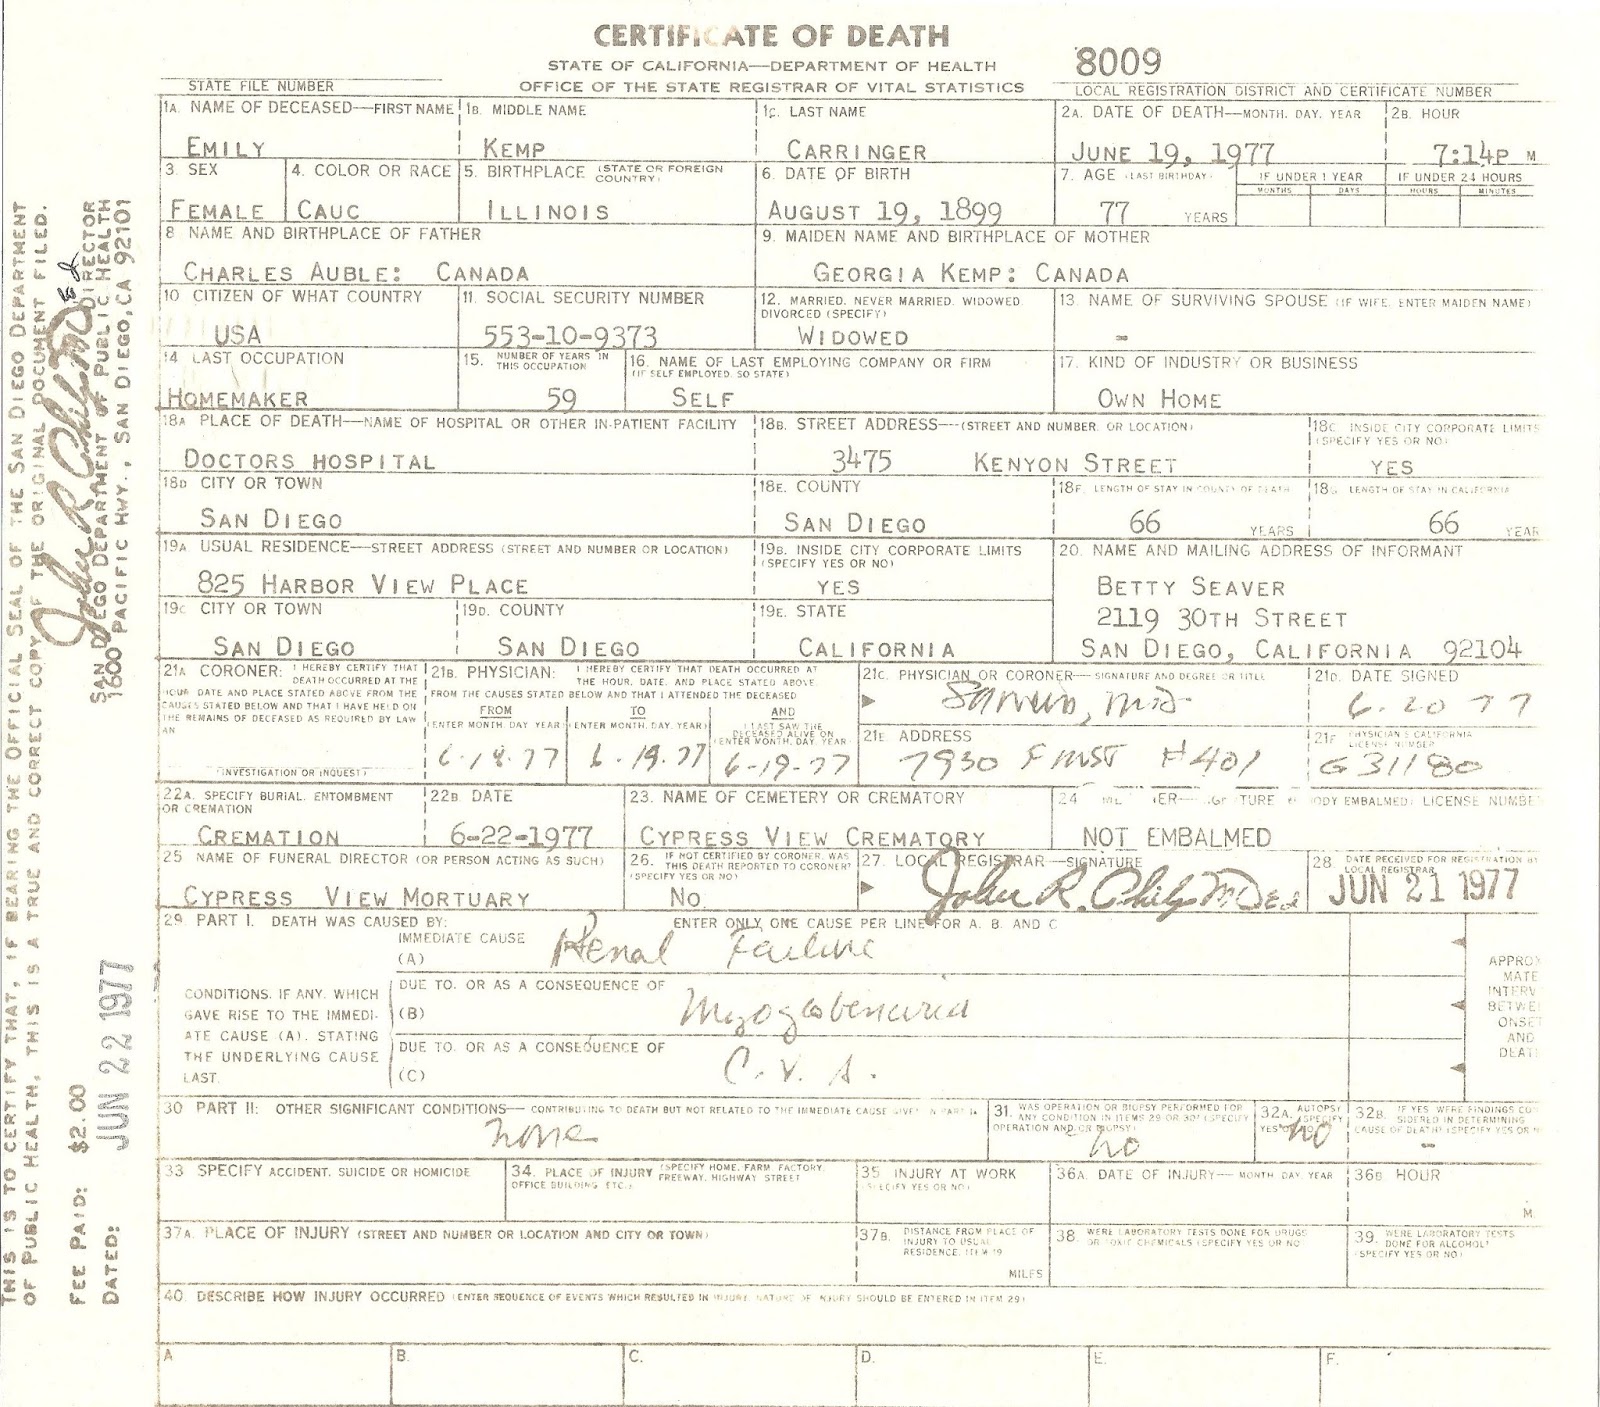 CERTIFICATE OF DEATH
STATE OF CALIFORNIA—DEPARTMENT OF HEALTH
OFFICE OF THE STATE REGISTRAR OF VITAL STATISTICS
STATE FILE NUMBER
8009
LOCAL REGISTRATION DISTRICT AND CERTIFICATE NUMBER
1A. NAME OF DECEASED—FIRST NAME
1B. MIDDLE NAME
1C. LAST NAME
2A. DATE OF DEATH—MONTH, DAY, YEAR
2B. HOUR
EMILY
KEMP
CARRINGER
JUNE 19, 1977
7:14P M
3. SEX
4. COLOR OR RACE
5. BIRTHPLACE (STATE OR FOREIGN COUNTRY)
6. DATE OF BIRTH
7. AGE (LAST BIRTHDAY)
IF UNDER 1 YEAR
MONTHS DAYS
IF UNDER 24 HOURS
HOURS MINUTES
FEMALE
CAUC
ILLINOIS
AUGUST 19, 1899
77 YEARS
8. NAME AND BIRTHPLACE OF FATHER
9. MAIDEN NAME AND BIRTHPLACE OF MOTHER
CHARLES AUBLE: CANADA
GEORGIA KEMP: CANADA
10 CITIZEN OF WHAT COUNTRY
11. SOCIAL SECURITY NUMBER
12. MARRIED, NEVER MARRIED, WIDOWED, DIVORCED (SPECIFY)
13. NAME OF SURVIVING SPOUSE (IF WIFE, ENTER MAIDEN NAME)
USA
553-10-9373
WIDOWED
-
14 LAST OCCUPATION
15. NUMBER OF YEARS IN THIS OCCUPATION
16. NAME OF LAST EMPLOYING COMPANY OR FIRM (IF SELF EMPLOYED, SO STATE)
17. KIND OF INDUSTRY OR BUSINESS
HOMEMAKER
59
SELF
OWN HOME
18A PLACE OF DEATH—NAME OF HOSPITAL OR OTHER IN-PATIENT FACILITY
18B. STREET ADDRESS—(STREET AND NUMBER, OR LOCATION)
18C INSIDE CITY CORPORATE LIMITS (SPECIFY YES OR NO)
DOCTORS HOSPITAL
3475 KENYON STREET
YES
18D CITY OR TOWN
18E. COUNTY
18F. LENGTH OF STAY IN COUNTY OF DEATH
18G. LENGTH OF STAY IN CALIFORNIA
SAN DIEGO
SAN DIEGO
66 YEARS
66 YEAR
19A USUAL RESIDENCE—STREET ADDRESS (STREET AND NUMBER OR LOCATION)
19B. INSIDE CITY CORPORATE LIMITS (SPECIFY YES OR NO)
20. NAME AND MAILING ADDRESS OF INFORMANT
825 HARBOR VIEW PLACE
YES
BETTY SEAVER
2119 30TH STREET
SAN DIEGO, CALIFORNIA 92104
19C CITY OR TOWN
19D. COUNTY
19E. STATE
SAN DIEGO
SAN DIEGO
CALIFORNIA
21A CORONER: I HEREBY CERTIFY THAT DEATH OCCURRED AT THE HOUR, DATE AND PLACE STATED ABOVE FROM THE CAUSES STATED BELOW AND THAT I HAVE HELD ON THE REMAINS OF DECEASED AS REQUIRED BY LAW AN
(INVESTIGATION OR INQUEST)
21B. PHYSICIAN: I HEREBY CERTIFY THAT DEATH OCCURRED AT THE HOUR, DATE, AND PLACE STATED ABOVE FROM THE CAUSES STATED BELOW AND THAT I ATTENDED THE DECEASED
FROM (ENTER MONTH, DAY, YEAR)
TO (ENTER MONTH, DAY, YEAR)
AND I LAST SAW THE DECEASED ALIVE ON (ENTER MONTH, DAY, YEAR)
6-18-77
6-19-77
6-19-77
21C. PHYSICIAN OR CORONER—SIGNATURE AND DEGREE OR TITLE
21D. DATE SIGNED
6-20-77
21E. ADDRESS
7930 #401
21F. PHYSICIAN'S CALIFORNIA LICENSE NUMBER
G31180
22A. SPECIFY BURIAL, ENTOMBMENT OR CREMATION
22B. DATE
23. NAME OF CEMETERY OR CREMATORY
24. BODY EMBALMED) LICENSE NUMBER
CREMATION
6-22-1977
CYPRESS VIEW CREMATORY
NOT EMBALMED
25 NAME OF FUNERAL DIRECTOR (OR PERSON ACTING AS SUCH)
26. IF NOT CERTIFIED BY CORONER, WAS THIS DEATH REPORTED TO CORONER? (SPECIFY YES OR NO)
27. LOCAL REGISTRAR—SIGNATURE
28 DATE RECEIVED FOR REGISTRATION BY LOCAL REGISTRAR
CYPRESS VIEW MORTUARY
NO
JUN 21 1977
29. PART I. DEATH WAS CAUSED BY:
ENTER ONLY ONE CAUSE PER LINE FOR A, B, AND C
IMMEDIATE CAUSE
(A) Renal Failure
CONDITIONS, IF ANY, WHICH GAVE RISE TO THE IMMEDIATE CAUSE (A), STATING THE UNDERLYING CAUSE LAST.
DUE TO, OR AS A CONSEQUENCE OF
(B)
DUE TO, OR AS A CONSEQUENCE OF
(C) C.V.A.
APPROXIMATE INTERVAL BETWEEN ONSET AND DEATH
30 PART II: OTHER SIGNIFICANT CONDITIONS—CONTRIBUTING TO DEATH BUT NOT RELATED TO THE IMMEDIATE CAUSE GIVEN IN PART IA
none
31. WAS OPERATION OR BIOPSY PERFORMED FOR ANY CONDITION IN ITEMS 29 OR 30? (SPECIFY OPERATION AND/OR BIOPSY)
no
32A. AUTOPSY (SPECIFY YES OR NO)
no
32B. IF YES, WERE FINDINGS CONSIDERED IN DETERMINING CAUSE OF DEATH? (SPECIFY YES OR N
-
33 SPECIFY ACCIDENT, SUICIDE OR HOMICIDE
34. PLACE OF INJURY (SPECIFY HOME, FARM, FACTORY, FREEWAY, HIGHWAY, STREET OFFICE BUILDING, ETC.)
35 INJURY AT WORK (SPECIFY YES OR NO)
36A. DATE OF INJURY—MONTH DAY, YEAR
36B HOUR
M.
37A. PLACE OF INJURY (STREET AND NUMBER OR LOCATION AND CITY OR TOWN)
37B. DISTANCE FROM PLACE OF INJURY TO USUAL RESIDENCE, ITEM 19
MILES
38. WERE LABORATORY TESTS DONE FOR DRUGS OR TOXIC CHEMICALS (SPECIFY YES OR NO
39. WERE LABORATORY TESTS DONE FOR ALCOHOL? (SPECIFY YES OR NO)
40. DESCRIBE HOW INJURY OCCURRED (ENTER SEQUENCE OF EVENTS WHICH RESULTED IN INJURY, NATURE OF INJURY SHOULD BE ENTERED IN ITEM 29)
A
B.
C.
D.
E.
F.
THIS IS TO CERTIFY THAT, IF BEARING THE OFFICIAL SEAL OF THE SAN DIEGO DEPARTMENT
OF PUBLIC HEALTH, THIS IS A TRUE AND CORRECT COPY OF THE ORIGINAL DOCUMENT FILED.
FEE PAID: $2.00
DATED: JUN 22 1977
DIRECTOR
SAN DIEGO DEPARTMENT OF PUBLIC HEALTH
1600 PACIFIC HWY., SAN DIEGO, CA 92101